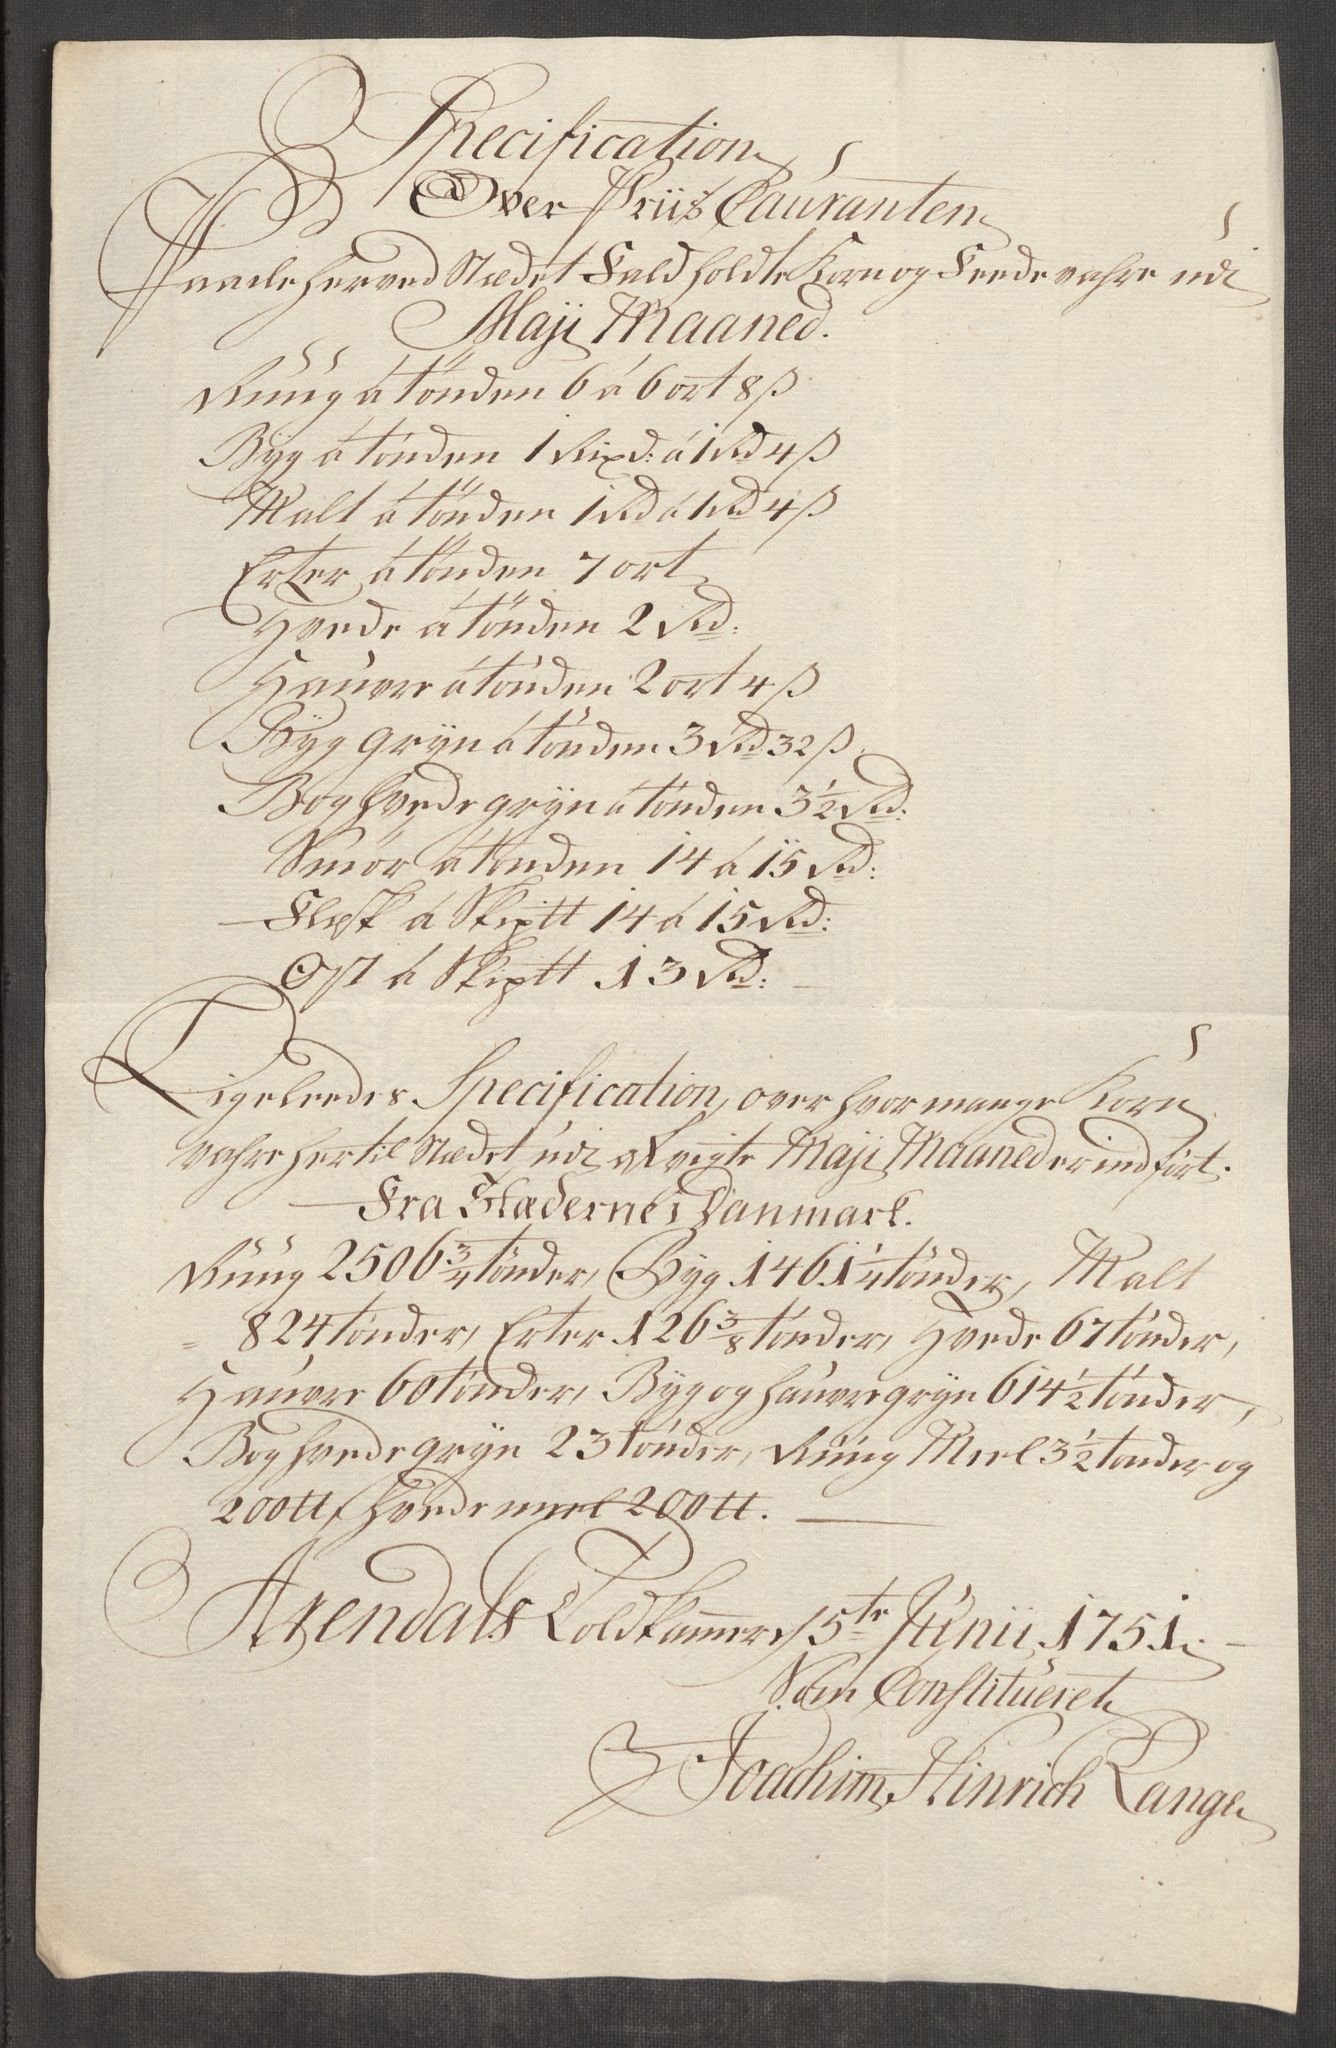 Specification
Over Priis Couranten
Paa de her ved Stædet Fald holdte Korn og Feede vahre udi
Maji Maaned.
Rúúg á tönden 6 á 6 ort 8 ß
Byg á tönden 1 Rixd: á 1 Rd 4 ß
Malt á tönden 1 Rd á 1 Rd 4 ß
Erter á tönden 7 ort
Hvede á tönden 2 Rd:
Hauvre á tönden 2 ort 4 ß
Byg gryn á tönden 3 Rd 32 ß
Boghvede gryn á tönden 3½ Rd:
Smör á tönden 14 á 15 Rd:
Flesk á Skiptt 14 á 15 Rd:
Ost á Skiptt 13 Rd:
Ligeleedes Specification, over hvor mange Korn
vahre her til Stædet udi Maji Maaned er indfört.
Fra Stæderne i Danmark.
Rúúg 2506¾ tönder, Byg 1461¼ tönder, Malt
824 tönder, Erter 126⅜ tönder, Hvede 67 tönder,
Hauvre 60 tönder, Byg og hauvre gryn 614½ tönder,
Boghvede gryn 23 tönder, Rúúg Meel 3½ tönder og
200 tt, Hvede meel 200 tt.
Arendals Toldkammer 5te Junii 1751.
Som Constitueret
Joachim Hinrich Lange